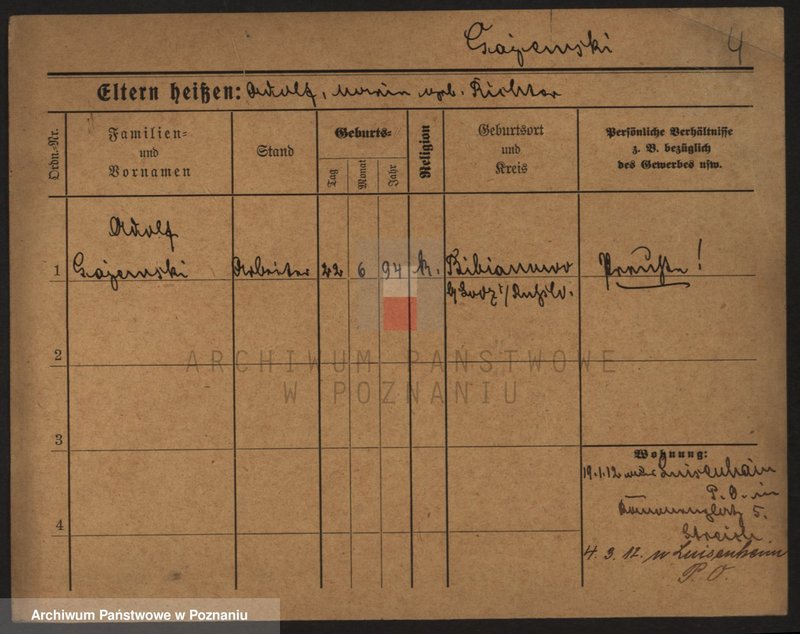 Gajewski 4
Eltern heißen: Adolf, Maria geb. Richter
Ordn.-Nr.
Familien-
und
Vornamen
Stand
Geburts-
Tag
Monat
Jahr
Religion
Geburtsort
und
Kreis
Persönliche Verhältnisse
z. B. bezüglich
des Gewerbes usw.
Adolf
1 Gajewski Arbeiter 22 6 94 k. Bibianowo Preuße!
b/Lodz i/Rußld.
2
3
4
Wohnung:
19.1.12 Luisenhain
P. O. in
5.
4. 3. 12. n Luisenhain
P. O.
ARCHIWUM PAŃSTWOWE
W POZNANIU
Archiwum Państwowe w Poznaniu